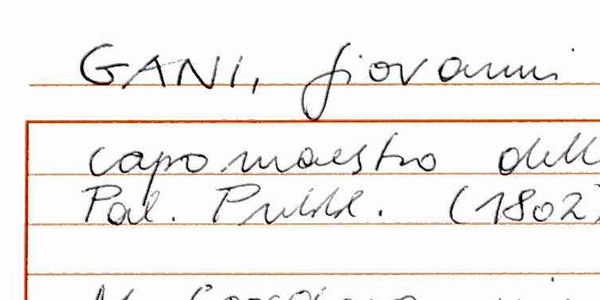 GANI, Giovanni
capo maestro dell
Pal. Pubbl. (1802)